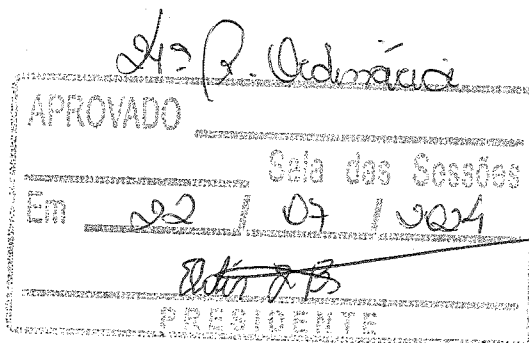 24ª R. Ordinária
APROVADO
Sala das Sessões
Em 22 / 07 / 2024
PRESIDENTE